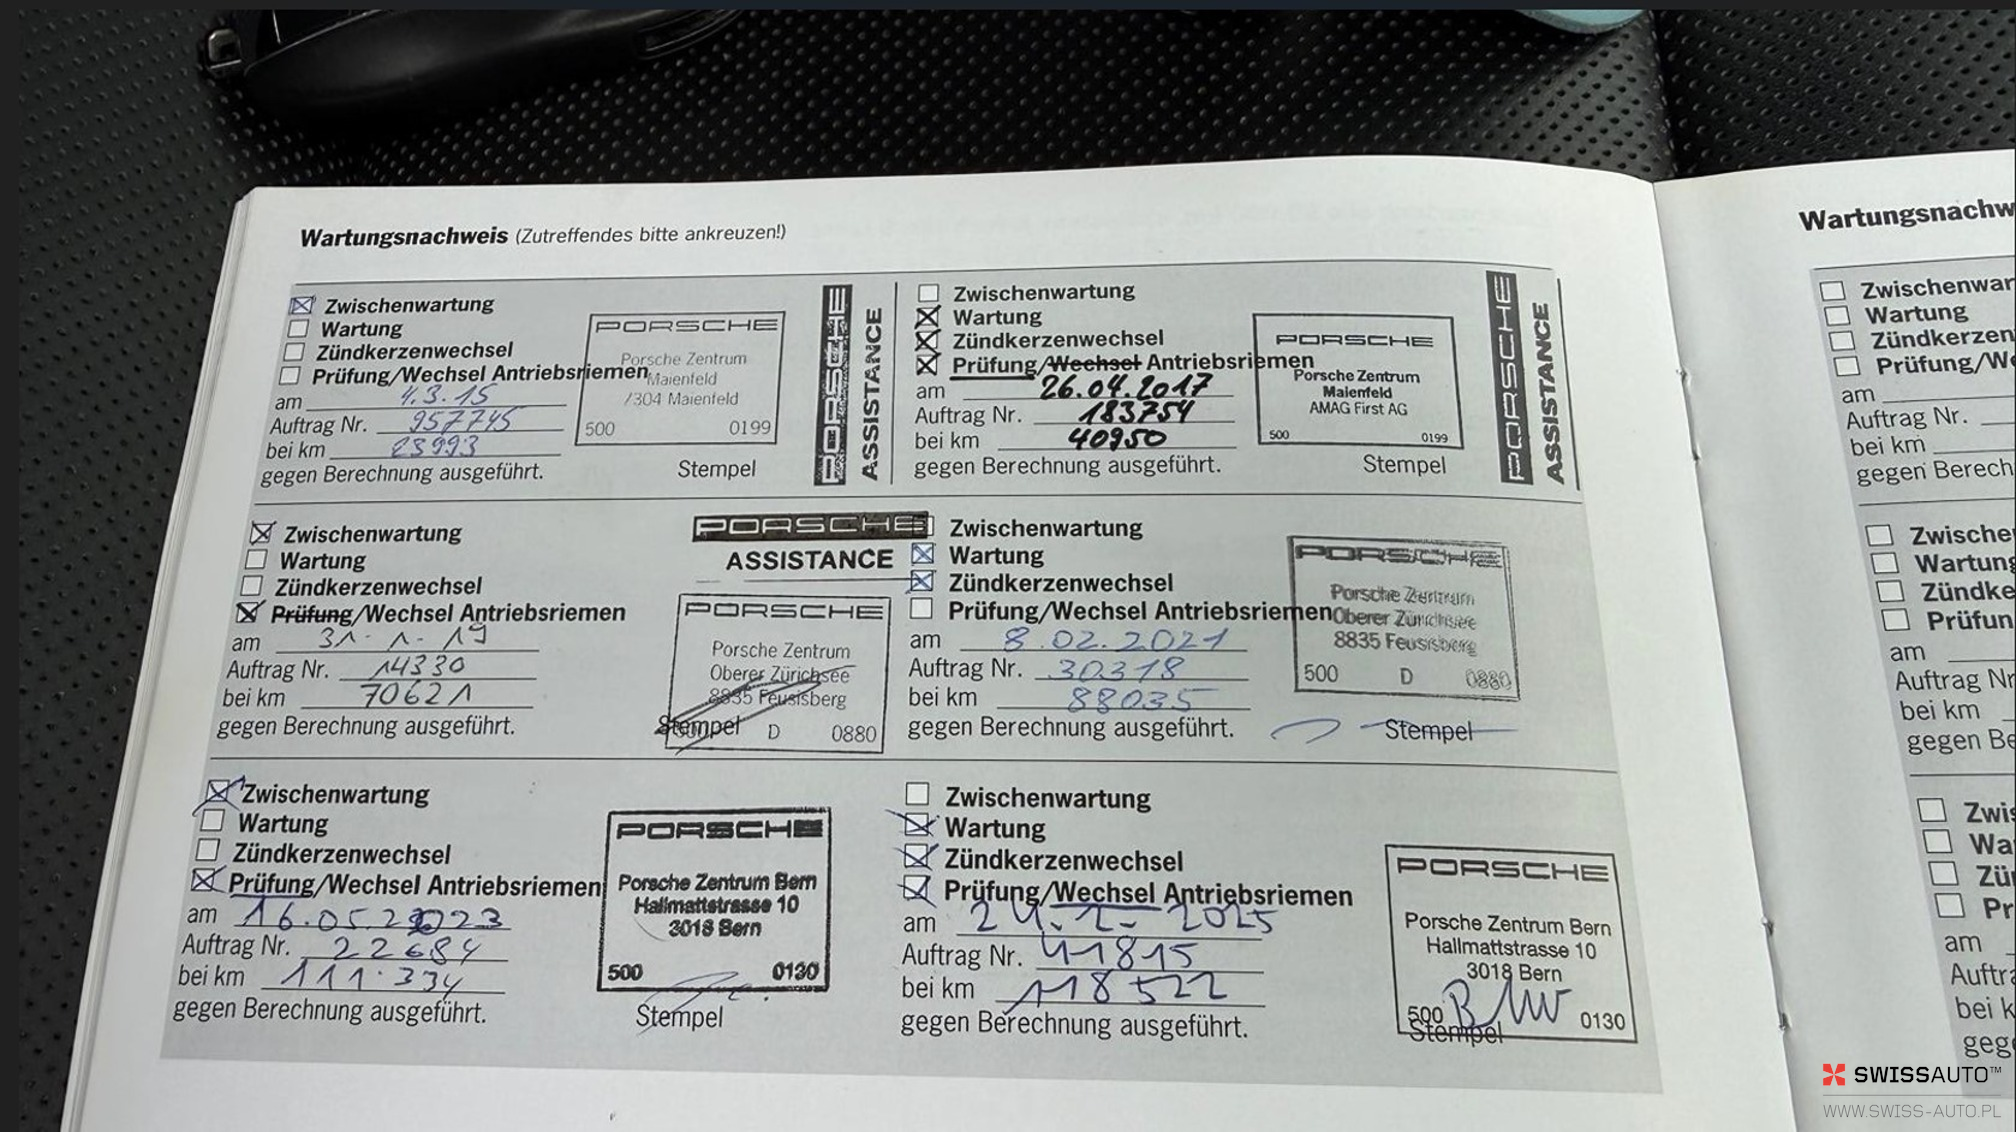 Wartungsnachweis (Zutreffendes bitte ankreuzen!)
Zwischenwartung
Wartung
Zündkerzenwechsel
Prüfung/Wechsel Antriebsriemen
am 4.3.15
Auftrag Nr. 957745
bei km 23993
gegen Berechnung ausgeführt.
PORSCHE
Porsche Zentrum
Maienfeld
7304 Maienfeld
500 0199
Stempel
PORSCHE
ASSISTANCE
Zwischenwartung
Wartung
Zündkerzenwechsel
Prüfung/Wechsel Antriebsriemen
am 26.04.2017
Auftrag Nr. 183754
bei km 40950
gegen Berechnung ausgeführt.
PORSCHE
Porsche Zentrum
Maienfeld
AMAG First AG
500 0199
Stempel
PORSCHE
ASSISTANCE
Zwischenwartung
Wartung
Zündkerzenwechsel
Prüfung/Wechsel Antriebsriemen
am 31.1.19
Auftrag Nr. 14330
bei km 70621
gegen Berechnung ausgeführt.
PORSCHE
ASSISTANCE
PORSCHE
Porsche Zentrum
Oberer Zürichsee
8835 Feusisberg
D 0880
Stempel
Zwischenwartung
Wartung
Zündkerzenwechsel
Prüfung/Wechsel Antriebsriemen
am 8.02.2021
Auftrag Nr. 30318
bei km 88035
gegen Berechnung ausgeführt.
PORSCHE
Porsche Zentrum
Oberer Zürichsee
8835 Feusisberg
500 D 0880
Stempel
Zwischenwartung
Wartung
Zündkerzenwechsel
Prüfung/Wechsel Antriebsriemen
am 16.05.2023
Auftrag Nr. 22684
bei km 111.334
gegen Berechnung ausgeführt.
PORSCHE
Porsche Zentrum Bern
Hallmattstrasse 10
3018 Bern
500 0130
Stempel
Zwischenwartung
Wartung
Zündkerzenwechsel
Prüfung/Wechsel Antriebsriemen
am 24.2-2025
Auftrag Nr. 41815
bei km 118522
gegen Berechnung ausgeführt.
PORSCHE
Porsche Zentrum Bern
Hallmattstrasse 10
3018 Bern
500 0130
Stempel
Wartungsnachw
Zwischenwar
Wartung
Zündkerzen
Prüfung/W
am
Auftrag Nr.
bei km
gegen Berech
Zwische
Wartung
Zündke
Prüfun
am
Auftrag Nr
bei km
gegen Be
Zwis
Wa
Zü
Pr
am
Auftra
bei k
geg
SWISSAUTO™
WWW.SWISS-AUTO.PL